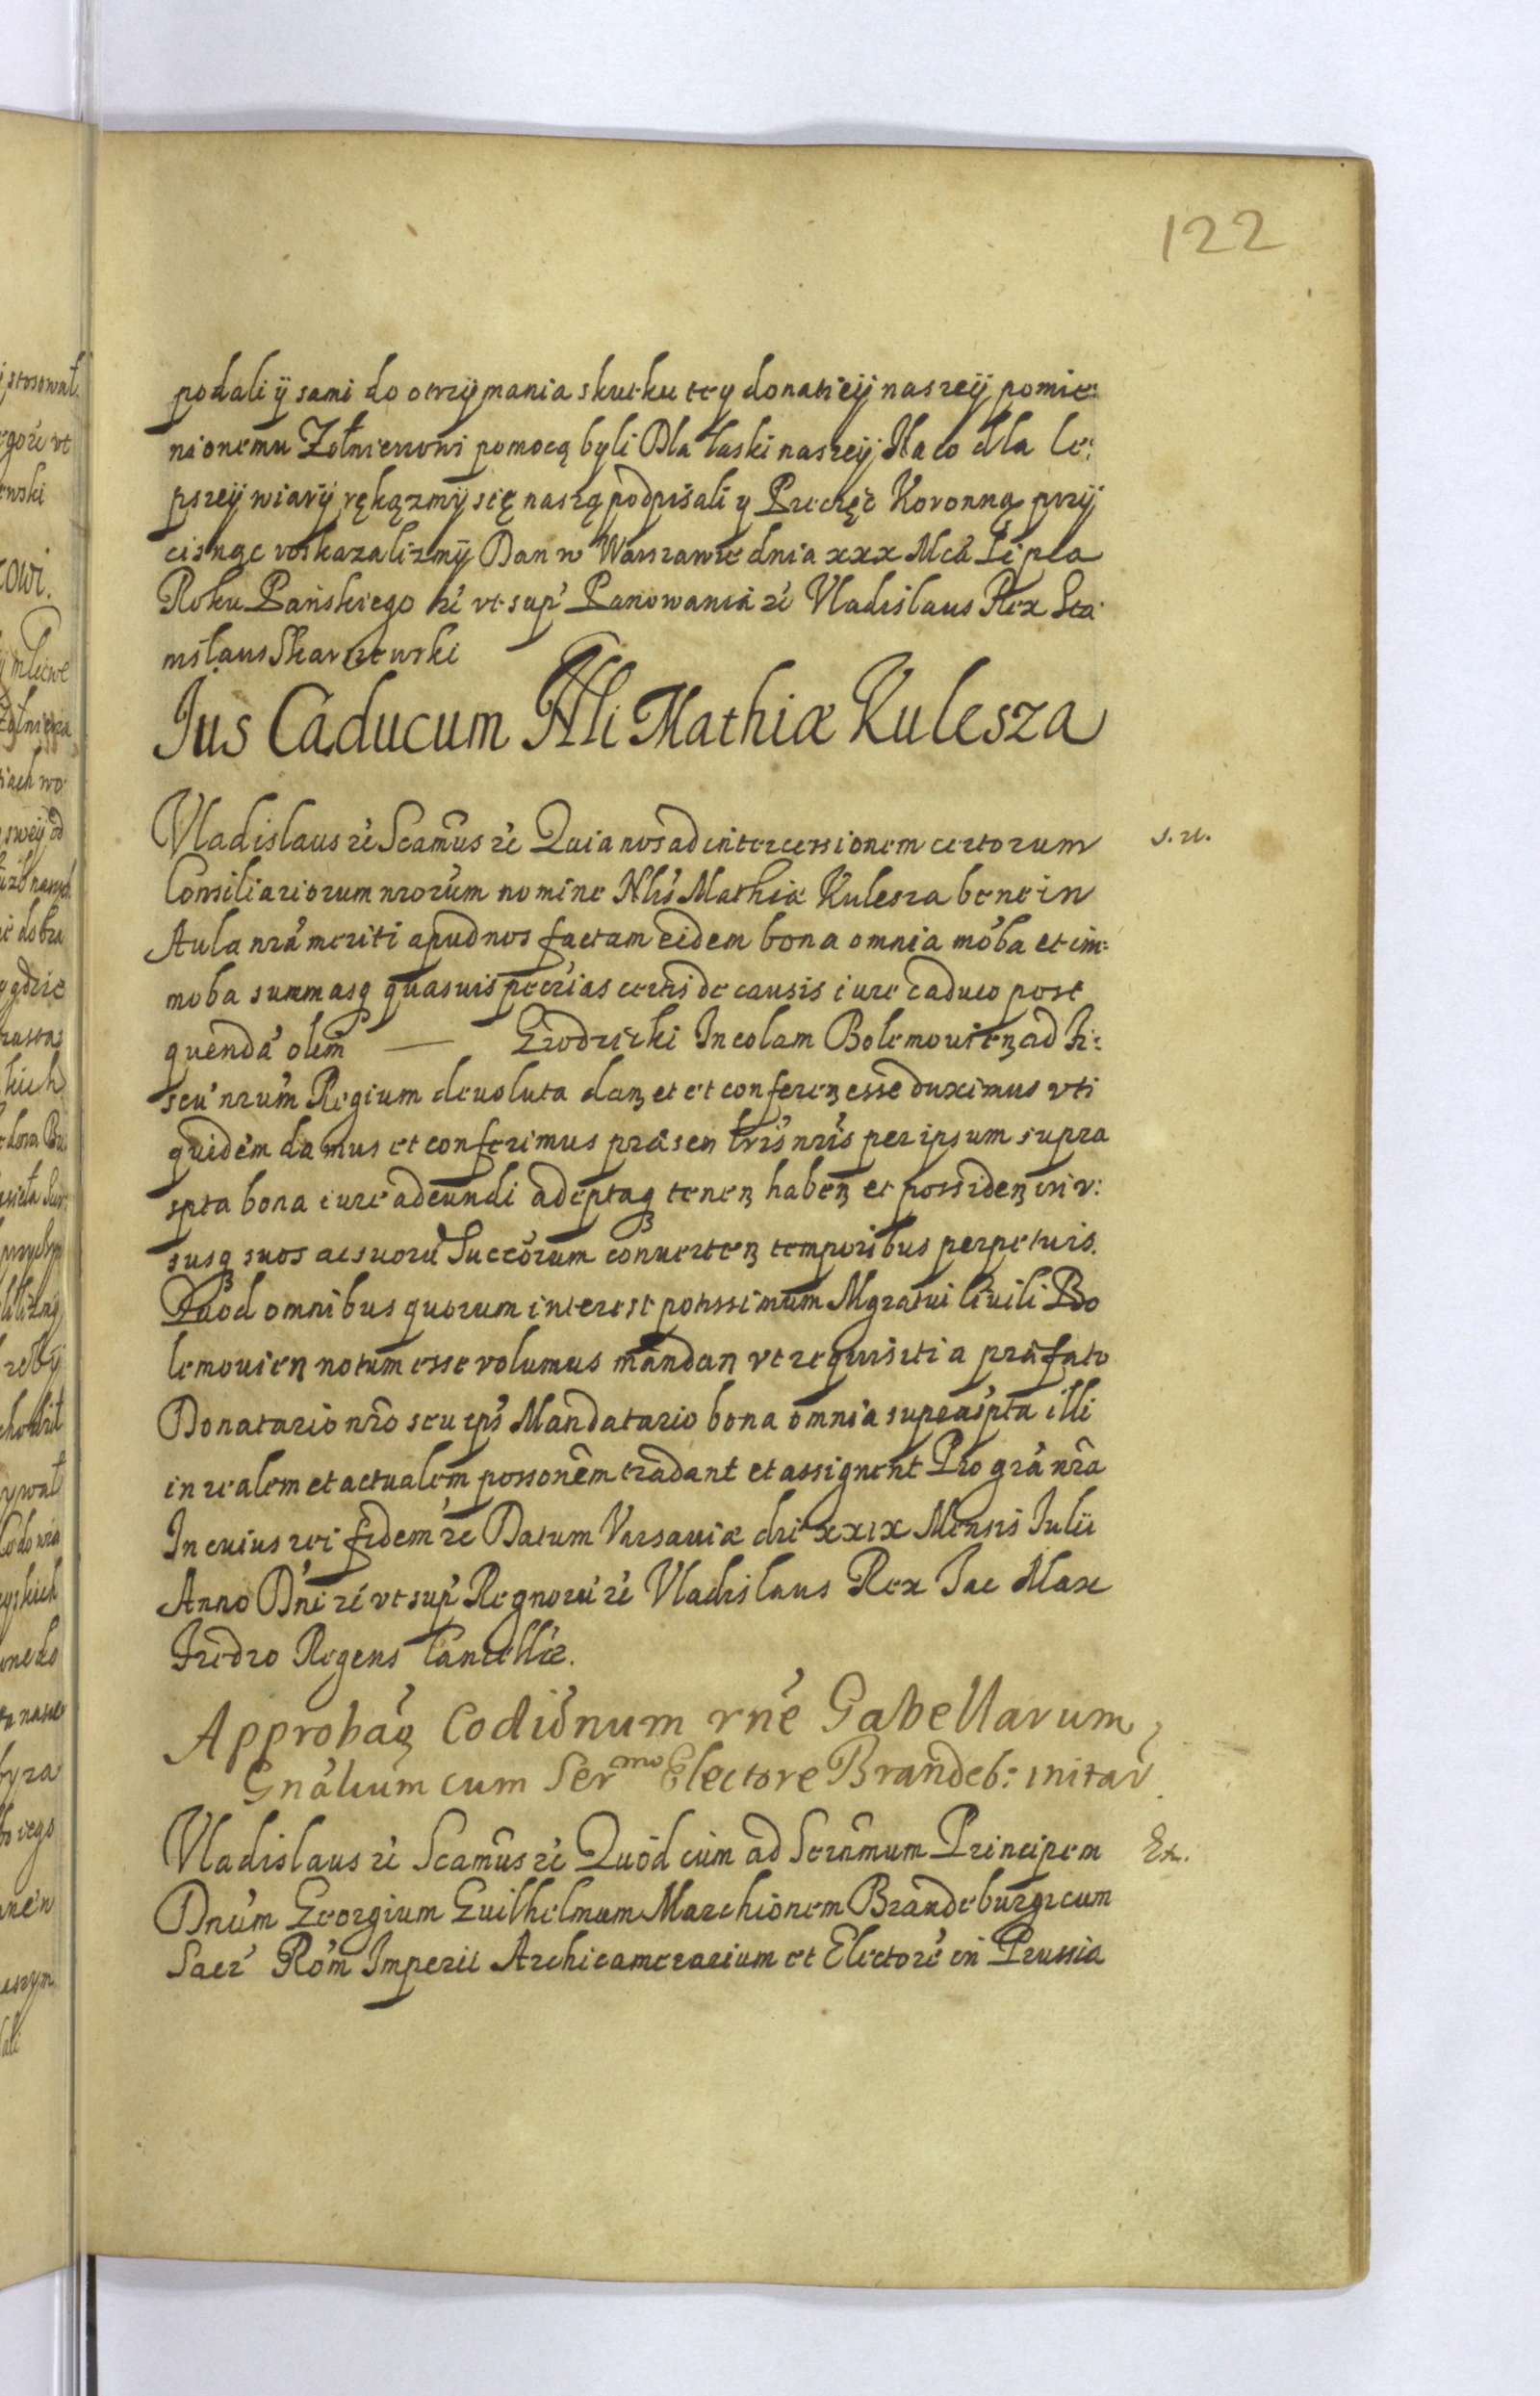 122
podali ÿ sami do otrzÿmania skutku tey donatieÿ naszeÿ pomie:
nionemu Zołnierzowi pomocą byli Dla łaski naszeÿ Na co dla le:
pszeÿ wiarÿ ręką zmÿ się naszą podpisali y Pieczęć Koronną przÿ
cisnąc roskazali zmÿ Dan w Warszawie dnia xxx Mca Lipca
Roku Pańskiego ꝛć vt supʼ Panowania ꝛć Vladislaus Rex Sta
nislaus Skarszewski
Jus Caducum Nli Mathiæ Kulesza
Vladislaus ꝛć Scamûs ꝛć Quia nos ad intercessionem certorum
s. n.
Consiliariorum nrorum nomine Nlis Mathiæ Kulesza bene in
Aula nrâ meriti apud nos factam eidem bona omnia móba et im:
moba summasq quasuis pecrias certis de causis iure caduco post
quendá olim — Grodzicki Incolam Bolemouien ad fi:
scu nrum Regium deuoluta danȝ et et conferenȝ esse duximus vti
quidem damus et conferimus præsen lris nris per ipsum supra
spta bona iure adeundi adeptaq tenenȝ habenȝ et possidenȝ in v:
susq suos ac suorũ Succorum conuertenȝ temporibus perpetuis.
Quod omnibus quorum interest potissimum Mgratui Ciuili Bo
lemouien notum esse volumus mandan vt requisiti a præfato
Donatario nro seu eps Mandatario bona omnia suprapta illi
in realem et actualem possonem tradant et assignent Pro gra nra
In cuius rei fidem ꝛć Datum Varsauiæ die xxix Mensis Julii
Anno Dni ꝛć vt supʼ Regnorũ ꝛć Vladislaus Rex Jac Max
Fredro Regens Cancellæ.
Approbaȝ Codionum rne Gabellarum
Gnalium cum Serᵐᵒ Electore Brandeb: initar
Vladislaus ꝛć Scamûs ꝛć Quod cum ad Sermum Principem
Ex.
Dnum Georgium Guilhelmum Marchionem Brandeburgicum
Sacr Rom Imperii Archicamerarium et Electoré in Prussia